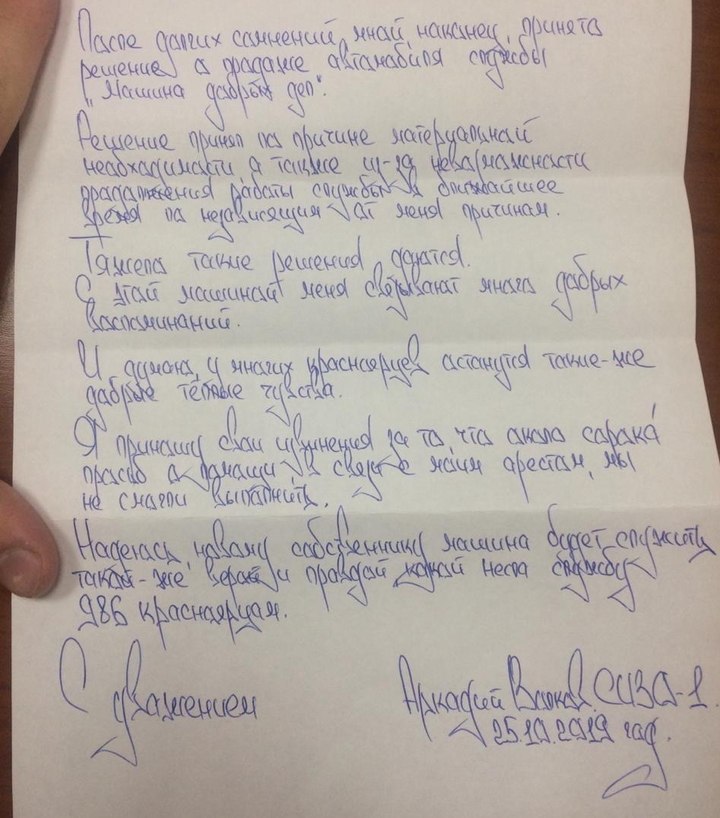 После долгих сомнений мной, наконец, принято
решение о продаже автомобиля службы
"Машина добрых дел".
Решение принял по причине материальной
необходимости, а также из-за невозможности
продолжения работы службы в ближайшее
время по независящим от меня причинам.
Тяжело такие решения даются.
С этой машиной меня связывают много добрых
воспоминаний.
И думаю, у многих красноярцев останутся такие-же
добрые тёплые чувства.
Я приношу свои извинения за то что около сорока
просьб о помощи в связи с моим арестом, мы
не смогли выполнить.
Надеюсь, новому собственнику машина будет служить
такой-же верой и правдой, какой несла службу
986 красноярцам.
С уважением
Аркадий Волков. СИЗО-1.
25.10.2019 год.